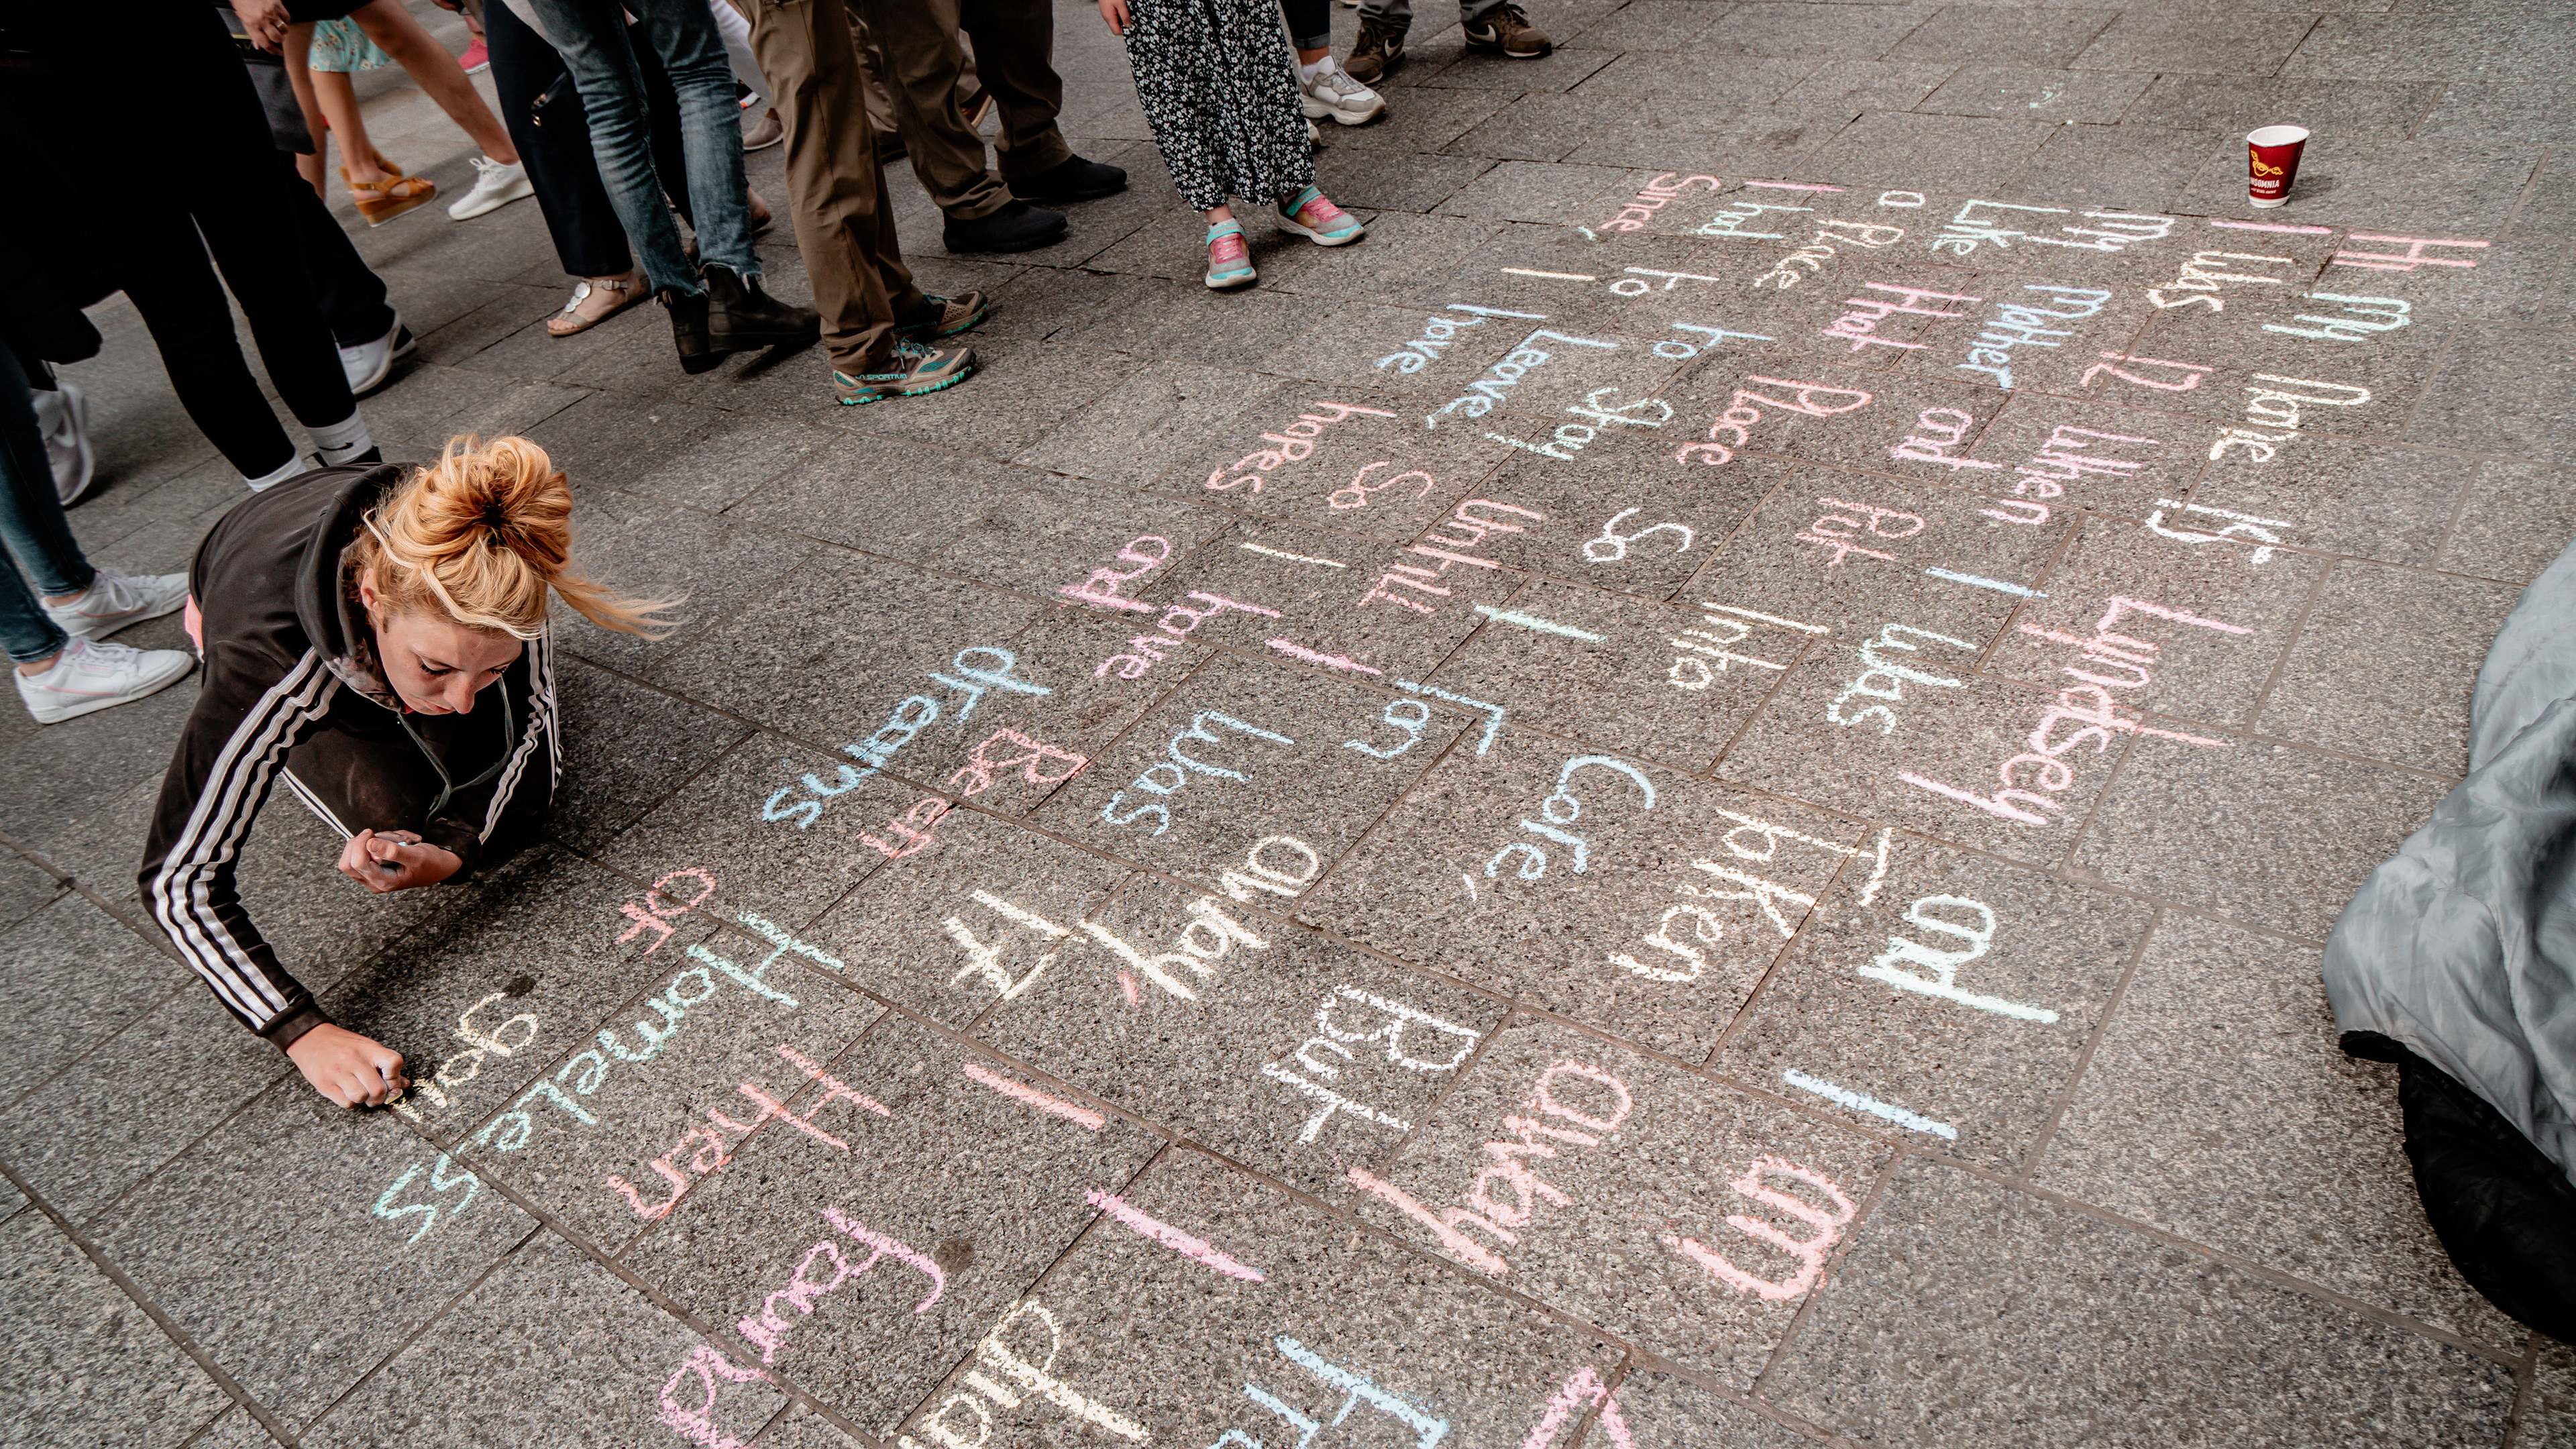 Hi My Name Is Lyndsey and I m
I Was 12 When I Was Taken away
my Mother and Put Into Care, But I did
Like that Place So I Ran away, I found
a Place to Stay until I Was 17 Then
I had to Leave, So I have Been Homeless
Since, I have hopes and dreams of goin
INSOMNIA
LA SPORTIVA